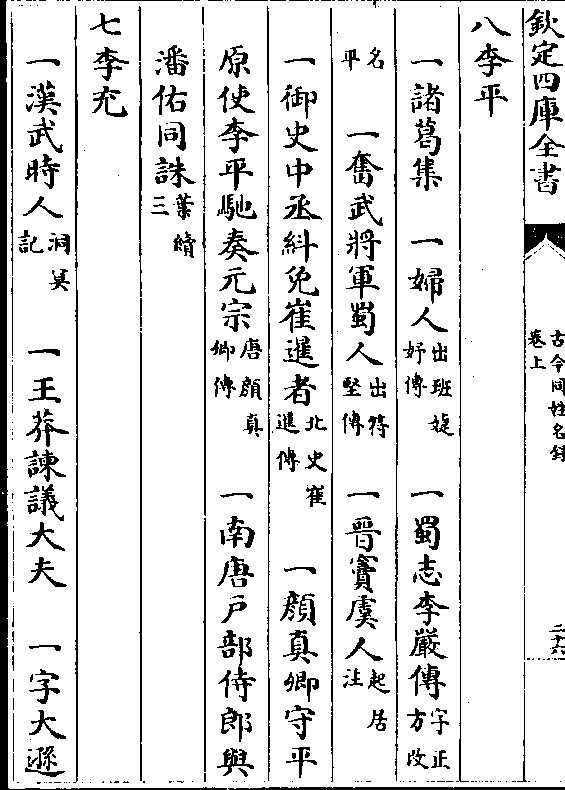 欽定四庫全書
古今同姓名錄
卷上
二十六
八李平
一諸葛集　一婦人出班婕妤傳　一蜀志李嚴傳字正方改
名平　一奮武將軍蜀人出符堅傳　一晉竇虞人起居注
一御史中丞糾免崔暹者北史崔暹傳　一顏真卿守平
原使李平馳奏元宗唐顏真卿傳　一南唐戶部侍郎與
潘佑同誅葉續三
七李充
一漢武時人洞冥記　一王莽諫議大夫　一字大遜